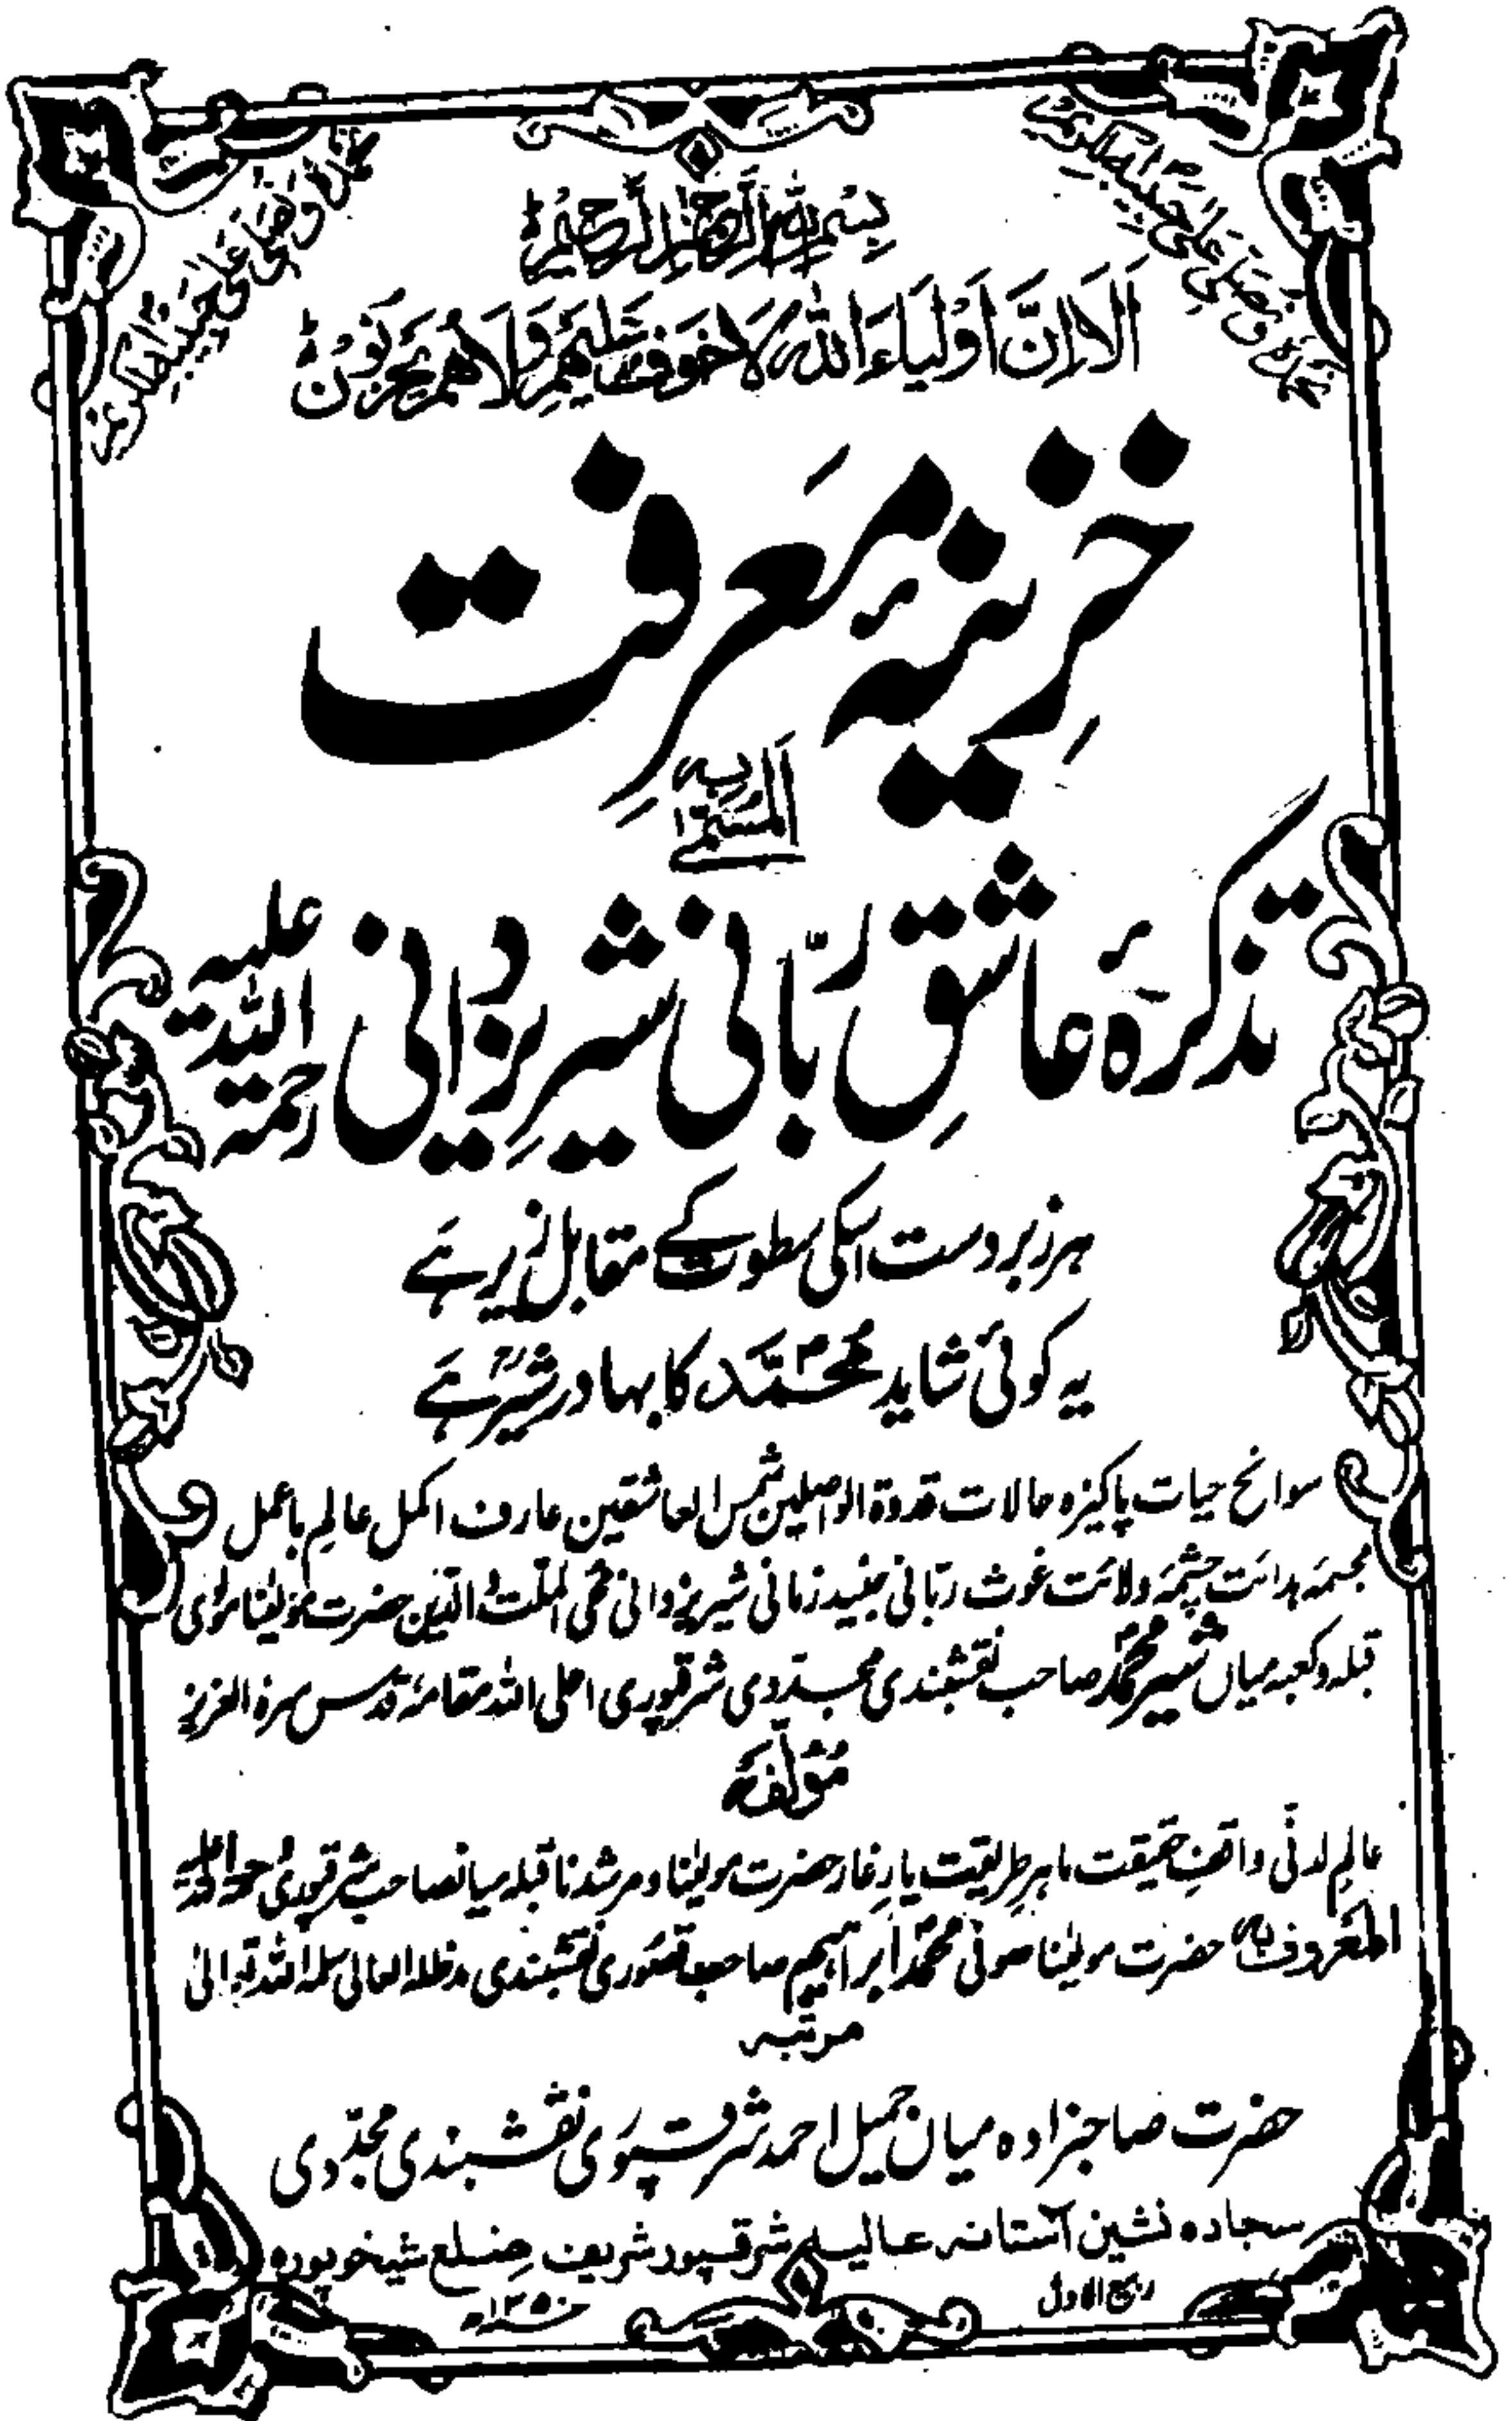 بِسْمِ اللهِ الرَّحْمٰنِ الرَّحِيْمِ ط
اَلَا اِنَّ اَوْلِيَاءَ اللهِ لَا خَوْفٌ عَلَيْهِمْ وَلَا هُمْ يَحْزَنُوْنَ ط
خزِینۂ مَعرِفت
تذکرۂ عاشقِ ربّانی شیرِ یزدانی رحمۃ اللہ علیہ
ہر زبردست اسکی سطوت کے مقابل زیر ہے
یہ کوئی شاید مُحَمَّد کا بہادر شیر ہے
سوانح حیات پاکیزہ حالات قدوۃ الواصلین شمس العاشقین عارف اکمل عالِم باعمل
مجسمۂ ہدائت چشمۂ ولائت غوث ربّانی جنید زمانی شیر یزدانی محی الملّت والدّین حضرت مولیٰنا مولوی
قبلہ و کعبہ میاں شیر محمّد صاحب نقشبندی مجدّدی شرقپوری اعلی اللہ مقامہٗ قدس سرہ العزیز
مؤلفہ
عالِم لدنّی واقفِ حقیقت ماہرِ طریقت یارِ غار حضرت مولیٰنا و مرشدنا قبلہ میانصاحب شرقپوری
المعروف بہ حضرت مولیٰنا صوفی محمّد ابراہیم صاحب قصوری نقشبندی مدظلہ العالی سلمہ اللہ تعالیٰ
مرتبہ
حضرت صاحبزادہ میاں جمیل احمد شرقپوری نقشبندی مجدّدی
سجادہ نشین آستانہ عالیہ شرقپور شریف ضلع شیخوپورہ
ربیع الاول